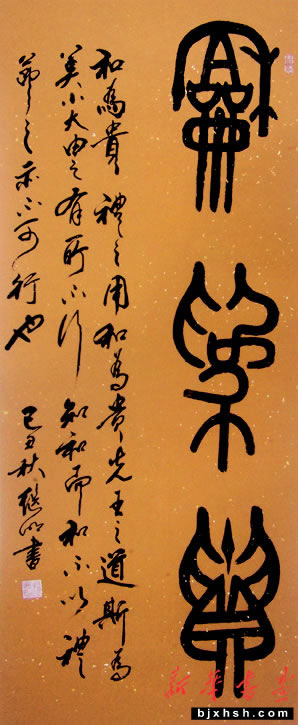 龢為貴
和為貴 禮之用和為貴先王之道斯為
美小大由之有所不行 知和而和不以禮
節之亦不可行也 己丑秋 書
新華書畫
bjxhsh.com